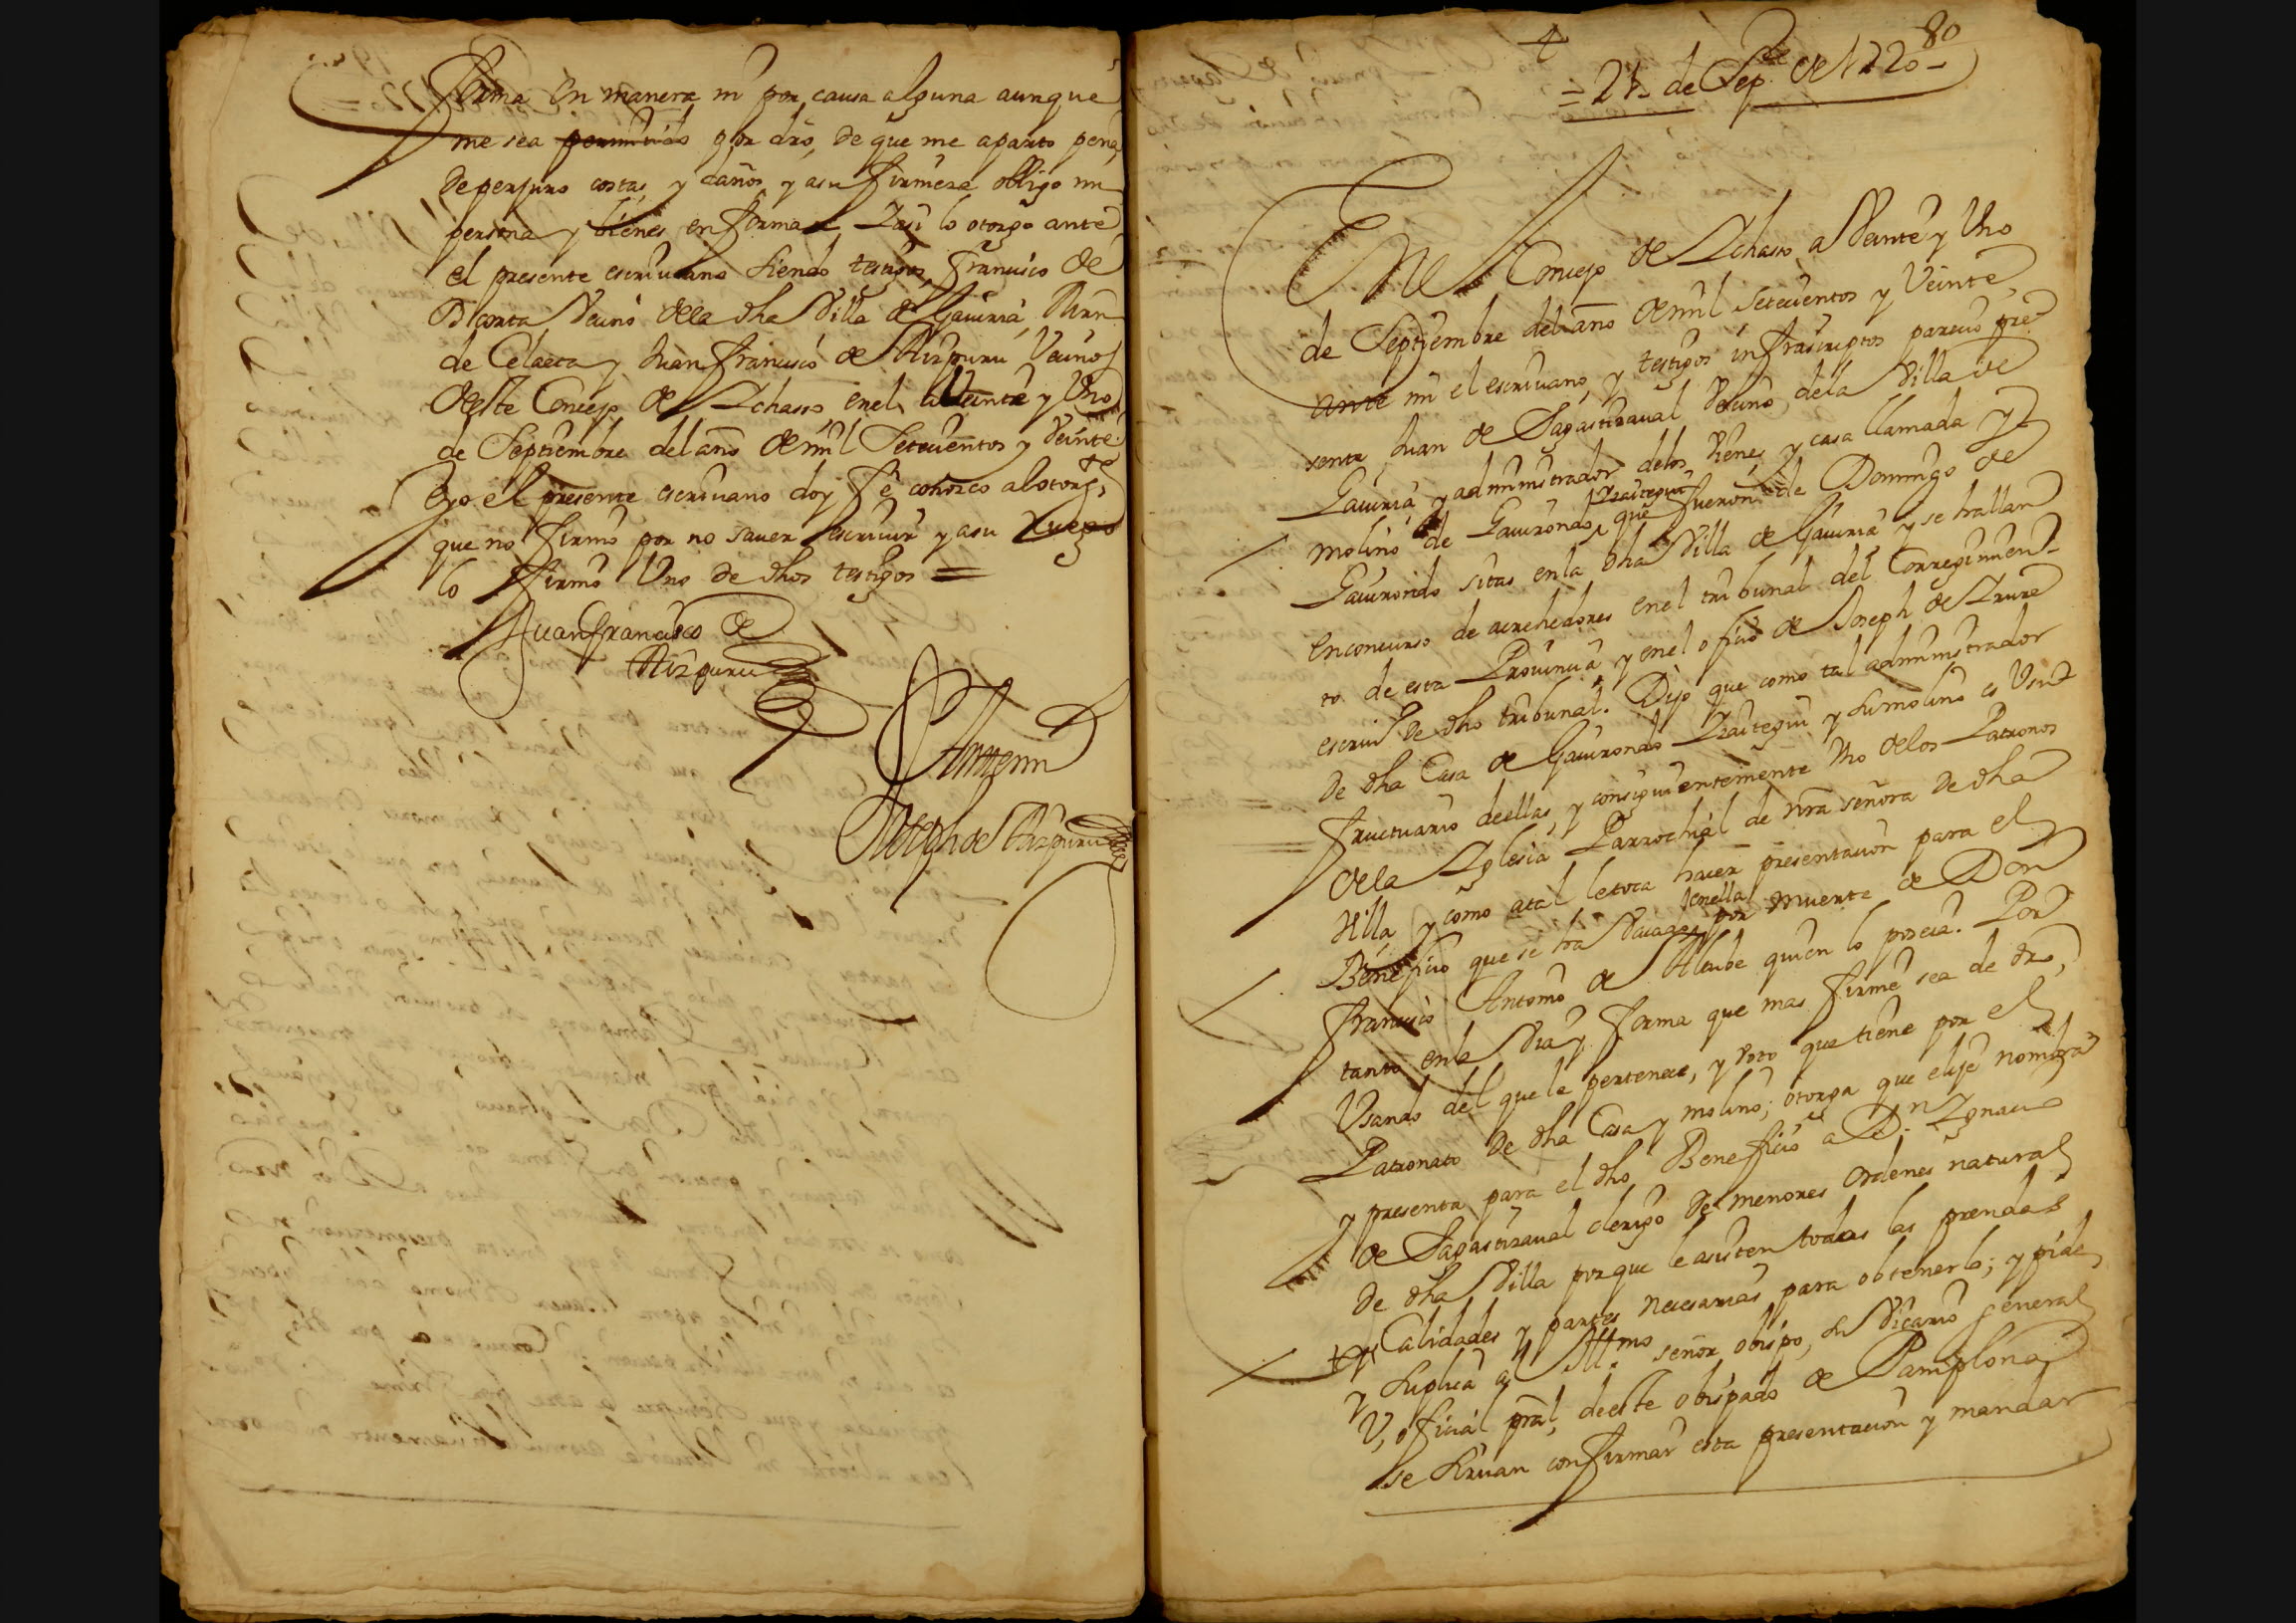 forma en manera ni por causa alguna aunque
me sea permitido por dro, de que me aparto pena
de perjuro costas, y daños, y asu firmeza obligo mi
persona y bienes en forma Yasi lo otorgo ante
el presente escriuano siendo testigos, Francisco de
vecino dela dha Villa de Gauiria,
de Celaeta y Juan francisco de Aizpuru Vecinos
deste Concejo de Ychasso, enel a Veinte y Vno
de Septiembre del año de mil Setecientos y Veinte
Eyo el presente escriuano doy fe conozco al otorg.te
que no firmó por no sauer escriuir y asu ruego
lo firmó Vno de dhos testigos =
Juan francisco de
Aizpuru
Ante mi
Joseph de Aizpuru
80
= 21 de Sep.re de 1720 =
En el Concejo de Ychasso a Veinte y Vno
de Septiembre del año de mil Setecientos y Veinte,
ante mi el escriuano, y testigos infrascriptos parecio pre
sente Juan de Sagastizaual Vecino dela Villa de
Gauiria y administrador delos bienes, y casa llamada y
molino de Gauirondo Yzaitegui que fueron de Domingo de
Gauirondo sitas enla dha Villa de Gauiria y se hallan
enconcurso de acrehedores enel tribunal del Corregimien-
to de esta Prouincia y enel oficio de Joseph de
escriu.o de dho tribunal. Dijo que como tal administrador
de dha Casa de Gauirondo Yzaitegui y su molino es Vsu
fructuario deellas, y consiguientemente Vno delos Patronos
dela Yglesia Parrochial de nra señora de dha
Villa y como atal letoca hacer presentacion para el
Beneficio que se ha Vacado enella por muerte de Don
Francisco Antonio de Altube quien lo poseia. Por
tanto enla Via y forma que mas firme sea de dro,
Vsando del que le pertenece, y voto que tiene por el
Patronato de dha Casa y molino; otorga que elije nombra
y presenta para el dho Beneficio a D.n Ygnacio
de Sagastizaual clerigo de menores ordenes natural
de dha Villa porque le asisten todas las prendas
Calidades y partes necesarias para obtenerlo; y pide
y suplica al Ill.mo señor obispo, su Vicario general
V, oficial pral, deeste obispado de Pamplona
se siruan confirmar esta presentacion y mandar